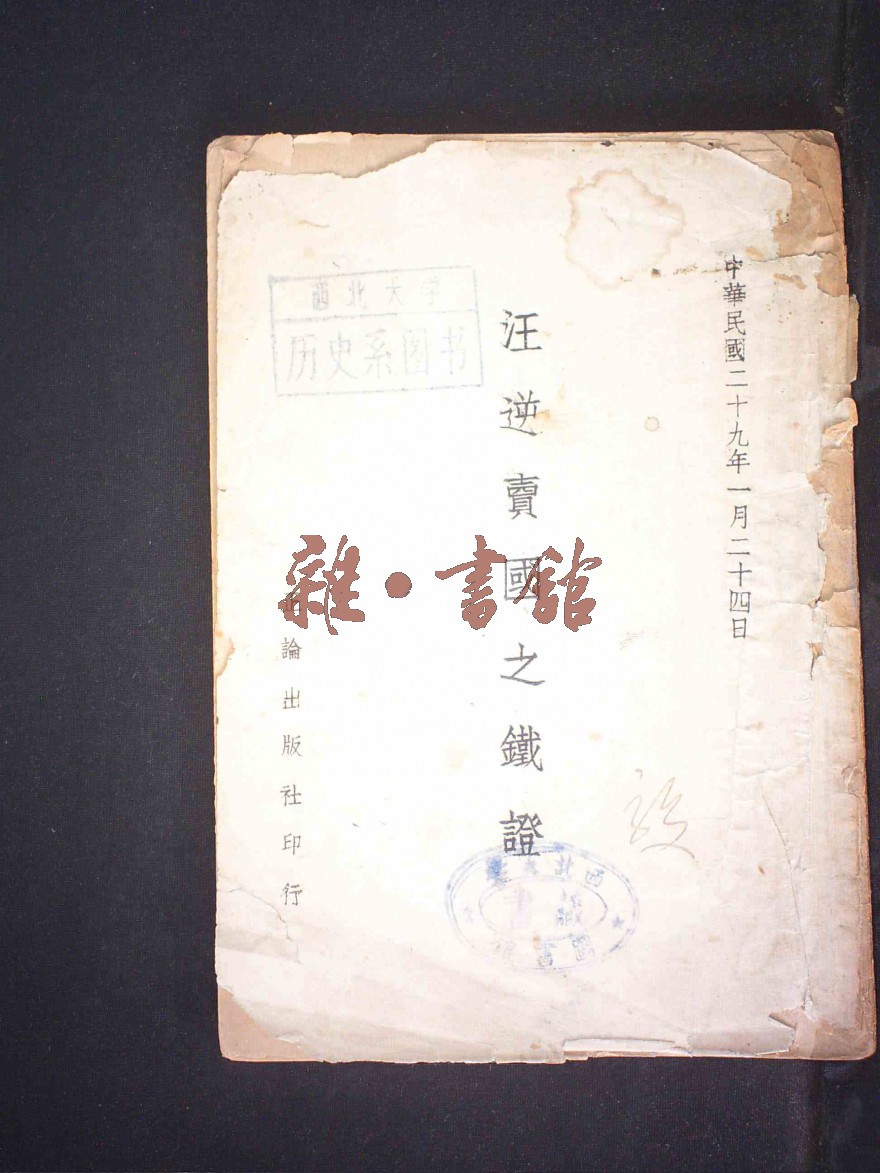 中華民國二十九年一月二十四日
汪逆賣國之鐵證
正論出版社印行
西北大学
历史系图书
雜·書館
西北大學
圖書館
藏書